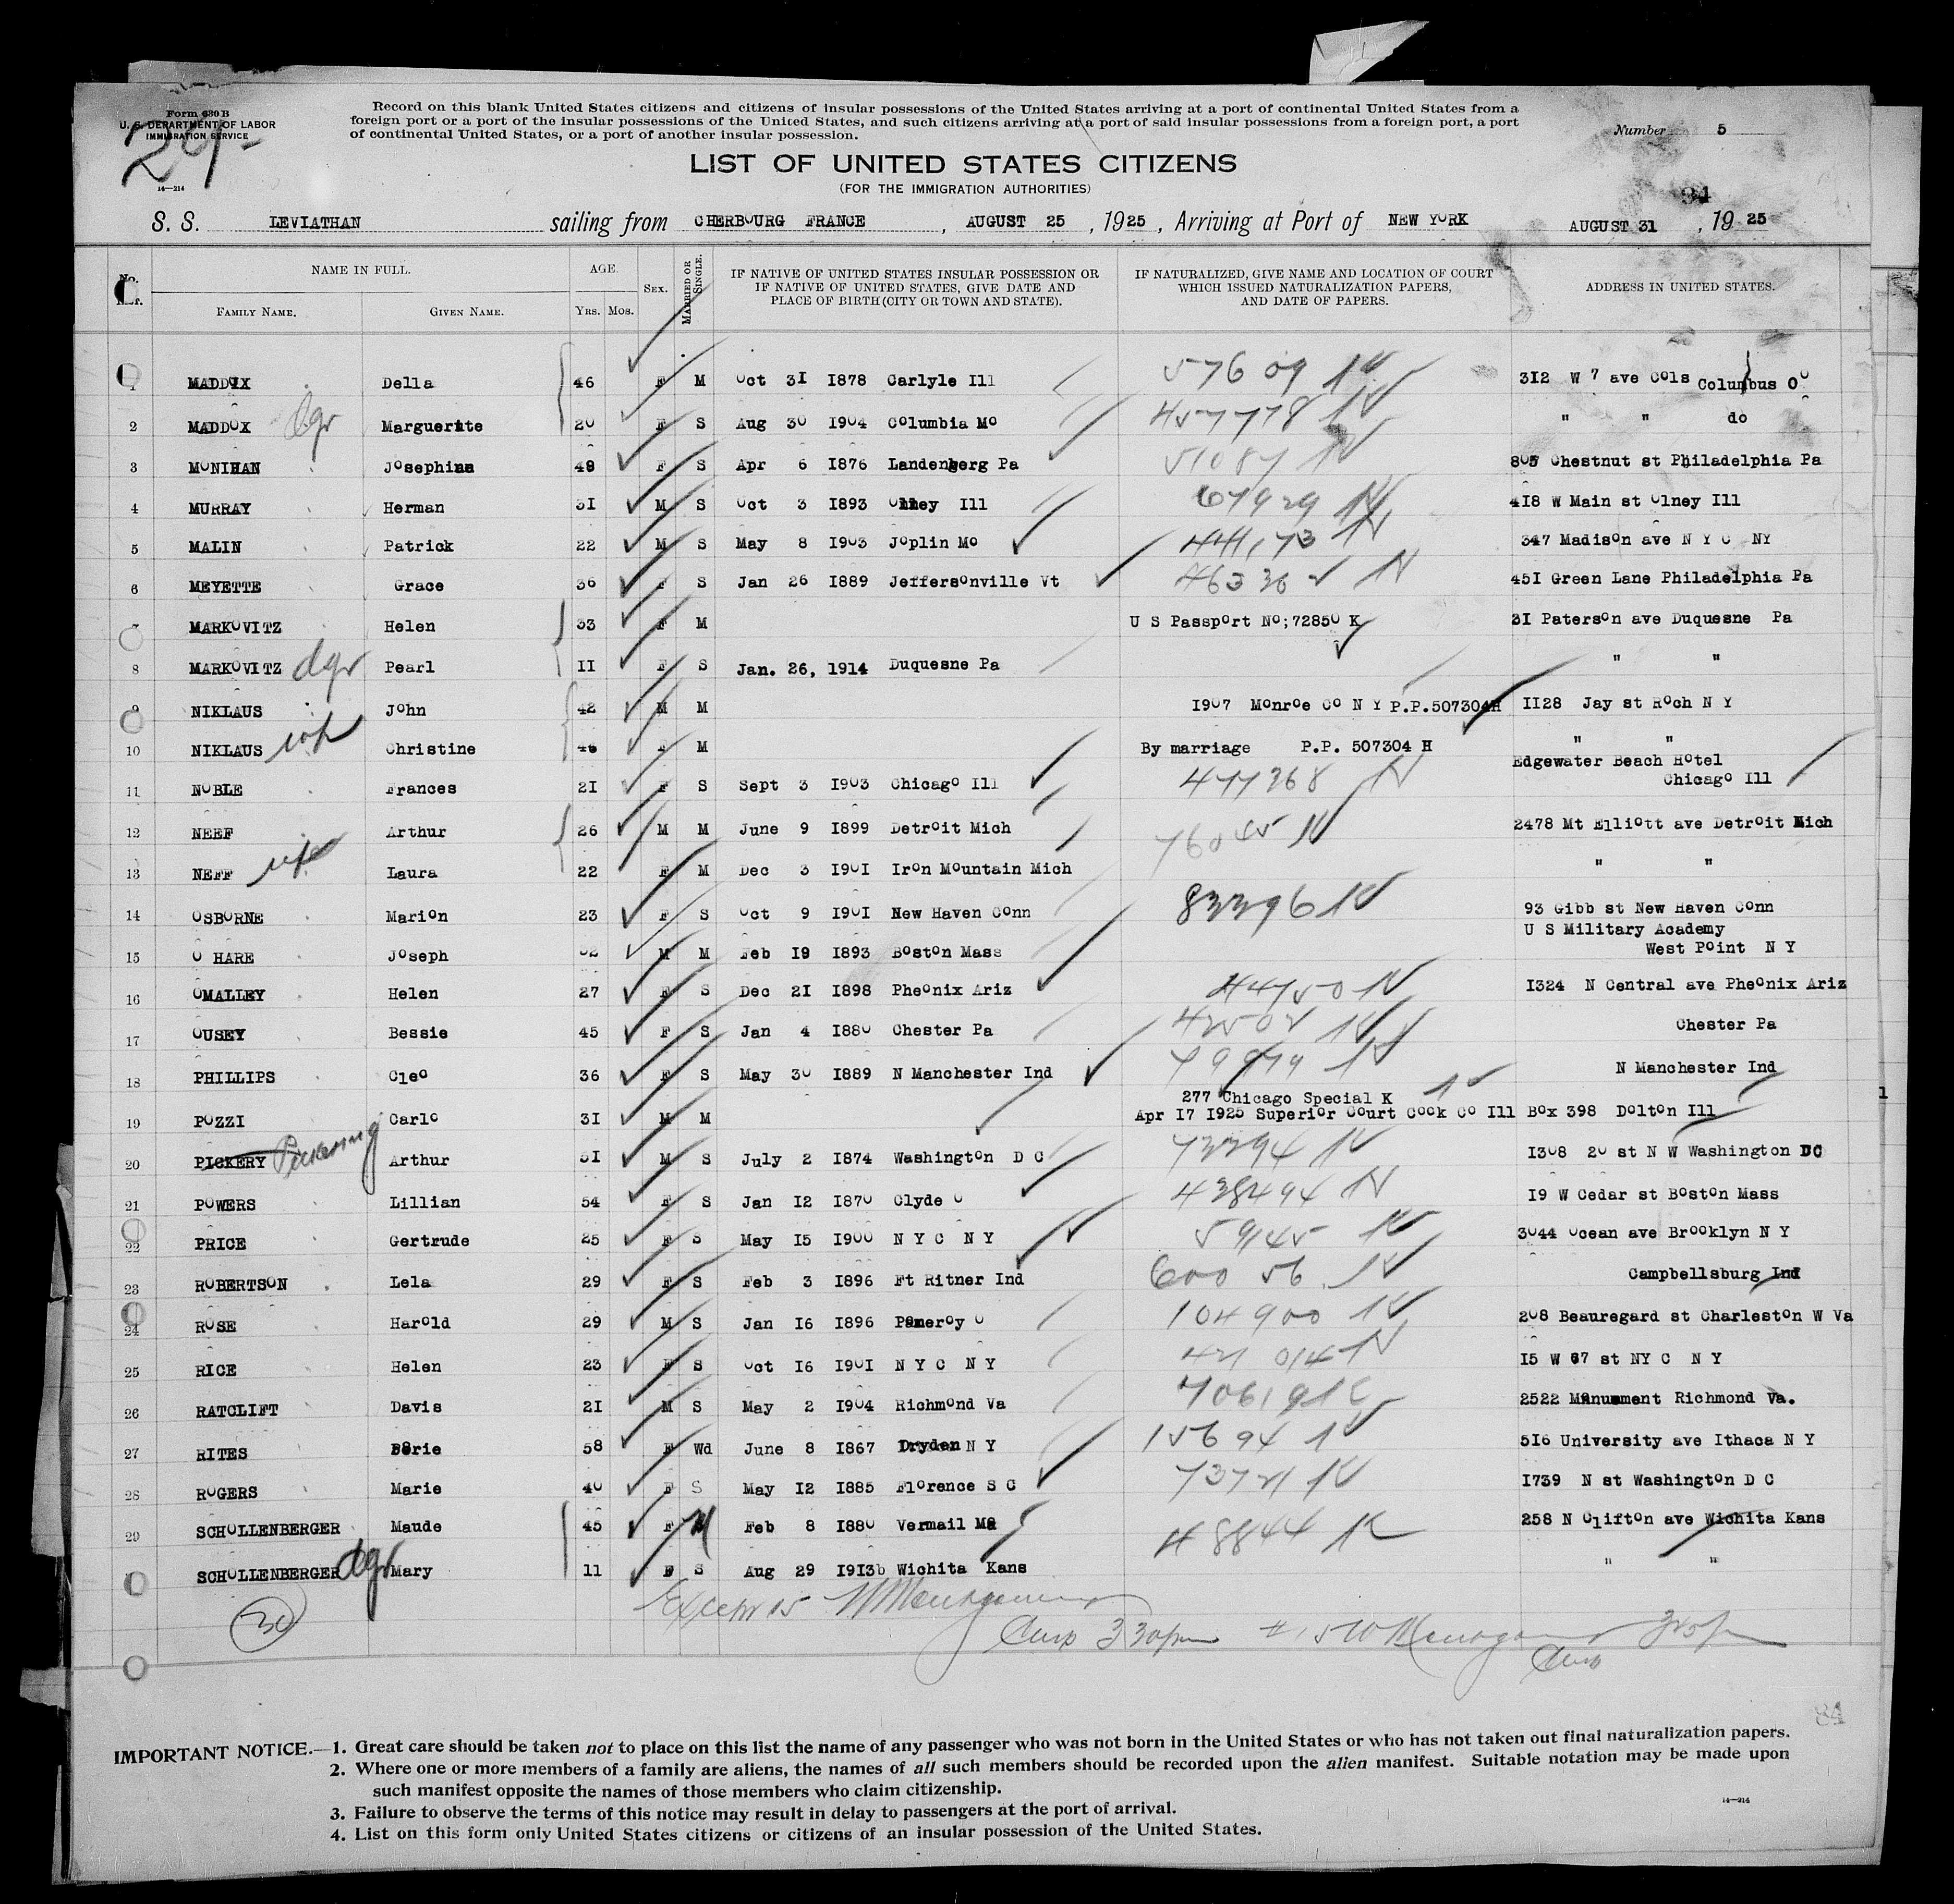 Form 630 B
U. S. DEPARTMENT OF LABOR
IMMIGRATION SERVICE
14—214
Record on this blank United States citizens and citizens of insular possessions of the United States arriving at a port of continental United States from a
foreign port or a port of the insular possessions of the United States, and such citizens arriving at a port of said insular possessions from a foreign port, a port
of continental United States, or a port of another insular possession.
Number 5
LIST OF UNITED STATES CITIZENS
(FOR THE IMMIGRATION AUTHORITIES)
S. S. LEVIATHAN sailing from CHERBOURG FRANCE , AUGUST 25 , 1925 , Arriving at Port of NEW YORK AUGUST 31 , 19 25
NAME IN FULL. AGE. SEX. MARRIED OR SINGLE. IF NATIVE OF UNITED STATES INSULAR POSSESSION OR IF NATIVE OF UNITED STATES, GIVE DATE AND PLACE OF BIRTH (CITY OR TOWN AND STATE). IF NATURALIZED, GIVE NAME AND LOCATION OF COURT WHICH ISSUED NATURALIZATION PAPERS, AND DATE OF PAPERS. ADDRESS IN UNITED STATES.
FAMILY NAME. GIVEN NAME. YRS. MOS.
1 MADDOX Della 46 F M Oct 31 1878 Carlyle Ill 57609 312 W 7 ave Cols Columbus O
2 MADDOX dgr Marguerite 20 F S Aug 30 1904 Columbia Mo 457778 " " do
3 MONIHAN Josephine F S Apr 6 1876 Landenberg Pa 51087 805 Chestnut st Philadelphia Pa
4 MURRAY Herman 31 M S Oct 3 1893 Olney Ill 67929 418 W Main st Olney Ill
5 MALIN Patrick 22 M S May 8 1903 Joplin Mo 347 Madison ave N Y C NY
6 MEYETTE Grace 36 F S Jan 26 1889 Jeffersonville Vt 451 Green Lane Philadelphia Pa
7 MARKOVITZ Helen 33 F M U S Passport No;72850 K 31 Paterson ave Duquesne Pa
8 MARKOVITZ dgr Pearl 11 F S Jan. 26, 1914 Duquesne Pa " "
9 NIKLAUS John 42 M M 1907 Monroe Co N Y P.P.507304H 1128 Jay st Roch N Y
10 NIKLAUS wf Christine F M By marriage P.P. 507304 H " "
11 NOBLE Frances 21 F S Sept 3 1903 Chicago Ill 477368 Edgewater Beach Hotel
Chicago Ill
12 NEFF Arthur 26 M M June 9 1899 Detroit Mich 76045 2478 Mt Elliott ave Detroit Mich
13 NEFF wf Laura 22 F M Dec 3 1901 Iron Mountain Mich " "
14 OSBORNE Marion 23 F S Oct 9 1901 New Haven Conn 83396 93 Gibb st New Haven Conn
15 O HARE Joseph M M Feb 19 1893 Boston Mass U S Military Academy
West Point N Y
16 OMALLEY Helen 27 F S Dec 21 1898 Pheonix Ariz 44750 1324 N Central ave Pheonix Ariz
17 OUSEY Bessie 45 F S Jan 4 1880 Chester Pa Chester Pa
18 PHILLIPS Cleo 36 F S May 30 1889 N Manchester Ind 79979 N Manchester Ind
277 Chicago Special K
19 POZZI Carlo 31 M M Apr 17 1925 Superior Court Cook Co Ill Box 398 Dolton Ill
20 PICKERY Pickering Arthur 51 M S July 2 1874 Washington D C 1308 20 st N W Washington DC
21 POWERS Lillian 54 F S Jan 12 1870 Clyde O 438494 19 W Cedar st Boston Mass
22 PRICE Gertrude 25 F S May 15 1900 N Y C N Y 59145 3044 Ocean ave Brooklyn N Y
23 ROBERTSON Lela 29 F S Feb 3 1896 Ft Ritner Ind 60056 Campbellsburg Ind
24 ROSE Harold 29 M S Jan 16 1896 Pomeroy O 104900 208 Beauregard st Charleston W Va
25 RICE Helen 23 F S Oct 16 1901 N Y C N Y 15 W 67 st NY C N Y
26 RATCLIFT Davis 21 M S May 2 1904 Richmond Va 70619 2522 Monument Richmond Va.
27 RITES 58 F Wd June 8 1867 Dryden N Y 15694 516 University ave Ithaca N Y
28 ROGERS Marie 40 F S May 12 1885 Florence S C 73721 1739 N st Washington D C
29 SCHOLLENBERGER Maude 45 F M Feb 8 1880 Vermail Mo 48844 258 N Clifton ave Wichita Kans
SCHOLLENBERGER dgr Mary 11 F S Aug 29 1913b Wichita Kans " "
30
84
IMPORTANT NOTICE.—1. Great care should be taken not to place on this list the name of any passenger who was not born in the United States or who has not taken out final naturalization papers.
2. Where one or more members of a family are aliens, the names of all such members should be recorded upon the alien manifest. Suitable notation may be made upon
such manifest opposite the names of those members who claim citizenship.
3. Failure to observe the terms of this notice may result in delay to passengers at the port of arrival.
4. List on this form only United States citizens or citizens of an insular possession of the United States.
14—214